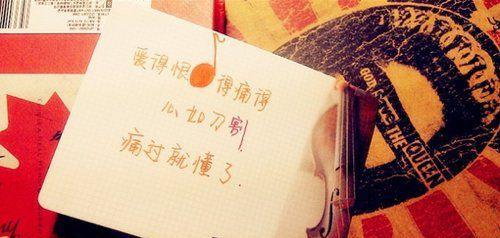 爱得恨 得痛得
心如刀割
痛过就懂了.
THE QUEEN